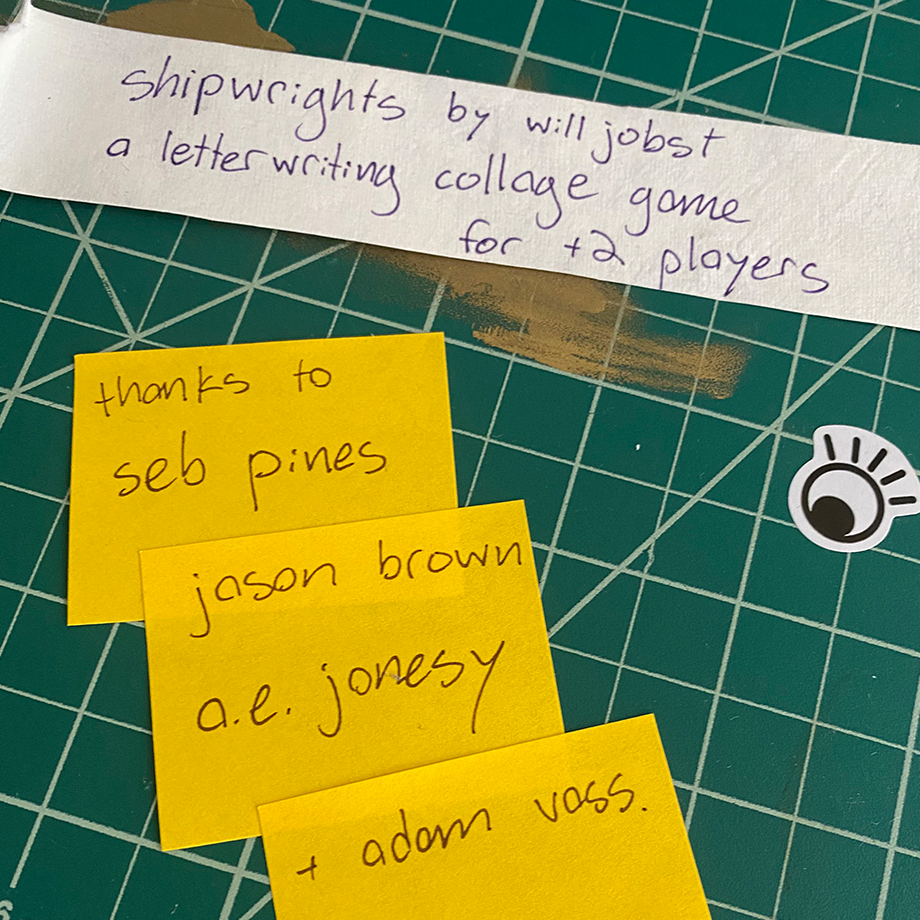 shipwrights by will jobst
a letterwriting collage game
for +2 players
thanks to
seb pines
jason brown
a.e. jonesy
+ adam vass.
6